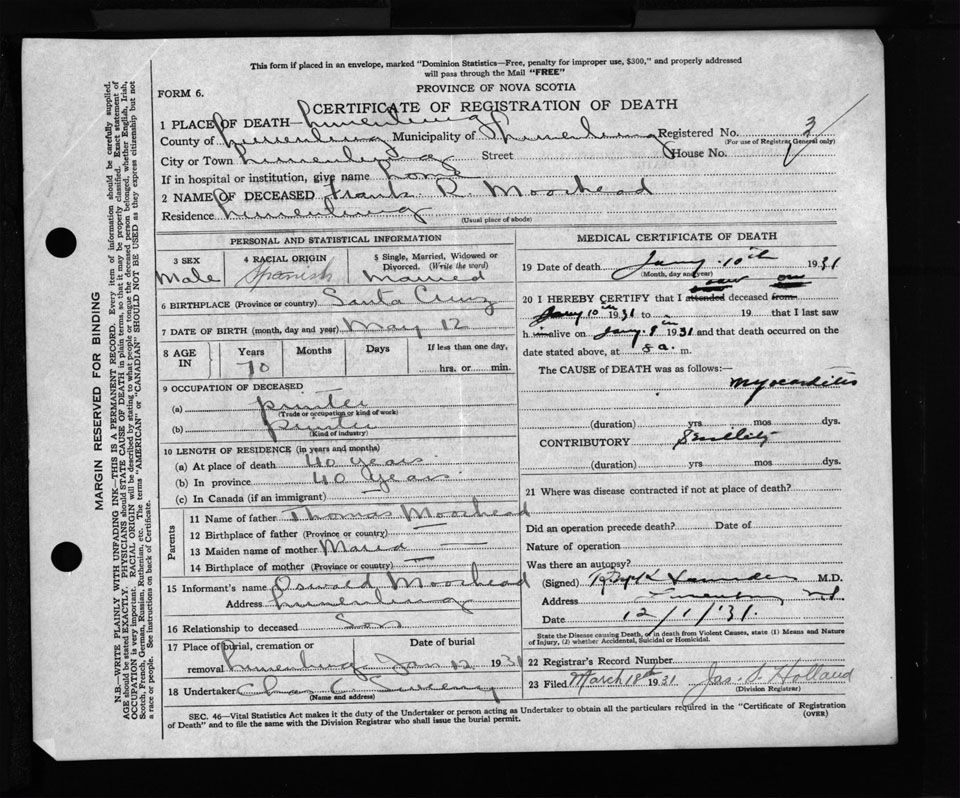 This form if placed in an envelope, marked "Dominion Statistics—Free, penalty for improper use, $300," and properly addressed
will pass through the Mail "FREE"
PROVINCE OF NOVA SCOTIA
FORM 6.
CERTIFICATE OF REGISTRATION OF DEATH
1 PLACE OF DEATH Lunenburg
County of Lunenburg Municipality of Lunenburg Registered No. 3
(For use of Registrar General only)
City or Town Lunenburg Street House No.
If in hospital or institution, give name home
2 NAME OF DECEASED Frank R. Moorhead
Residence Lunenburg
(Usual place of abode)
PERSONAL AND STATISTICAL INFORMATION
3 SEX Male
4 RACIAL ORIGIN Spanish
5 Single, Married, Widowed or Divorced. (Write the word) Married
6 BIRTHPLACE (Province or country) Santa Cruz
7 DATE OF BIRTH (month, day and year) May 12
8 AGE IN Years 70 Months Days If less than one day, hrs. or min.
9 OCCUPATION OF DECEASED
(a) printer
(Trade or occupation or kind of work)
(b) printer
(Kind of industry)
10 LENGTH OF RESIDENCE (in years and months)
(a) At place of death 40 years
(b) In province 40 years
(c) In Canada (if an immigrant)
Parents
11 Name of father Thomas Moorhead
12 Birthplace of father (Province or country) —
13 Maiden name of mother Maria —
14 Birthplace of mother (Province or country) —
15 Informant's name Oswald Moorhead
Address Lunenburg
16 Relationship to deceased Son
17 Place of burial, cremation or Date of burial
removal Lunenburg Jan 12 1931
18 Undertaker Chas C. Sweeny
(Name and address)
MEDICAL CERTIFICATE OF DEATH
19 Date of death Jany. 10th 1931
(Month, day and year)
saw
20 I HEREBY CERTIFY that I attended deceased from
Jany 10th 1931 to 19 that I last saw
h im alive on Jany. 9th 1931 and that death occurred on
date stated above, at 5 a. m.
The CAUSE of DEATH was as follows:—
Myocarditis
(duration) yrs mos dys.
CONTRIBUTORY Senility
(duration) yrs mos dys.
21 Where was disease contracted if not at place of death?
Did an operation precede death? Date of
Nature of operation
Was there an autopsy?
(Signed) M.D.
Address Lunenburg
Date 12/1/'31.
State the Disease causing Death, or in death from Violent Causes, state (1) Means and Nature
of Injury, (2) whether Accidental, Suicidal or Homicidal.
22 Registrar's Record Number
23 Filed March 18th 1931 Jas. S. Holland
(Division Registrar)
SEC. 46—Vital Statistics Act makes it the duty of the Undertaker or person acting as Undertaker to obtain all the particulars required in the "Certificate of Registration
of Death" and to file the same with the Division Registrar who shall issue the burial permit. (OVER)
MARGIN RESERVED FOR BINDING
N.B.—WRITE PLAINLY WITH UNFADING INK—THIS IS A PERMANENT RECORD. Every item of information should be carefully supplied.
AGE should be stated EXACTLY. PHYSICIANS should STATE CAUSE OF DEATH in plain terms, so that it may be properly classified. Exact statement of
OCCUPATION is very important. RACIAL ORIGIN will be described by stating to what people or tongue the deceased person belonged, whether English, Irish,
Scotch, French, German, Russian, Ruthenian, etc. The terms "AMERICAN" or "CANADIAN" SHOULD NOT BE USED as they express citizenship but not
a race or people. See instructions on back of Certificate.